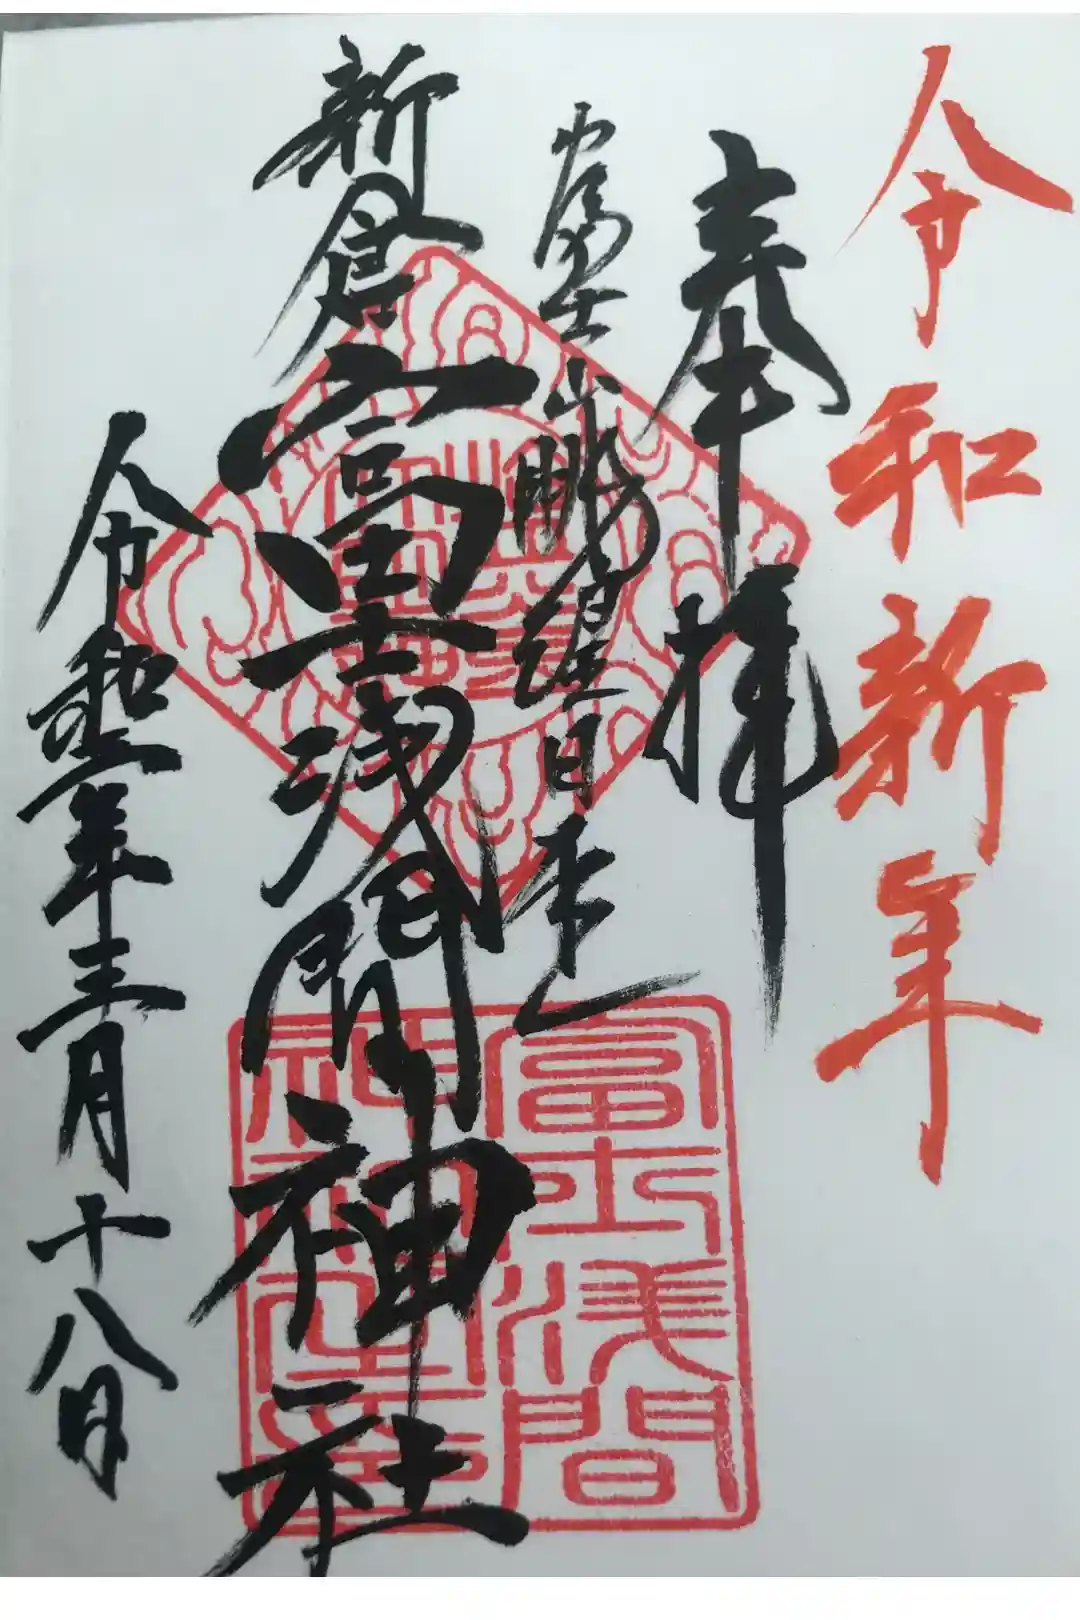 令和新年
奉拝
富士山眺望日本一
新倉富士浅間神社
令和 年三月十八日
富士浅間
神社